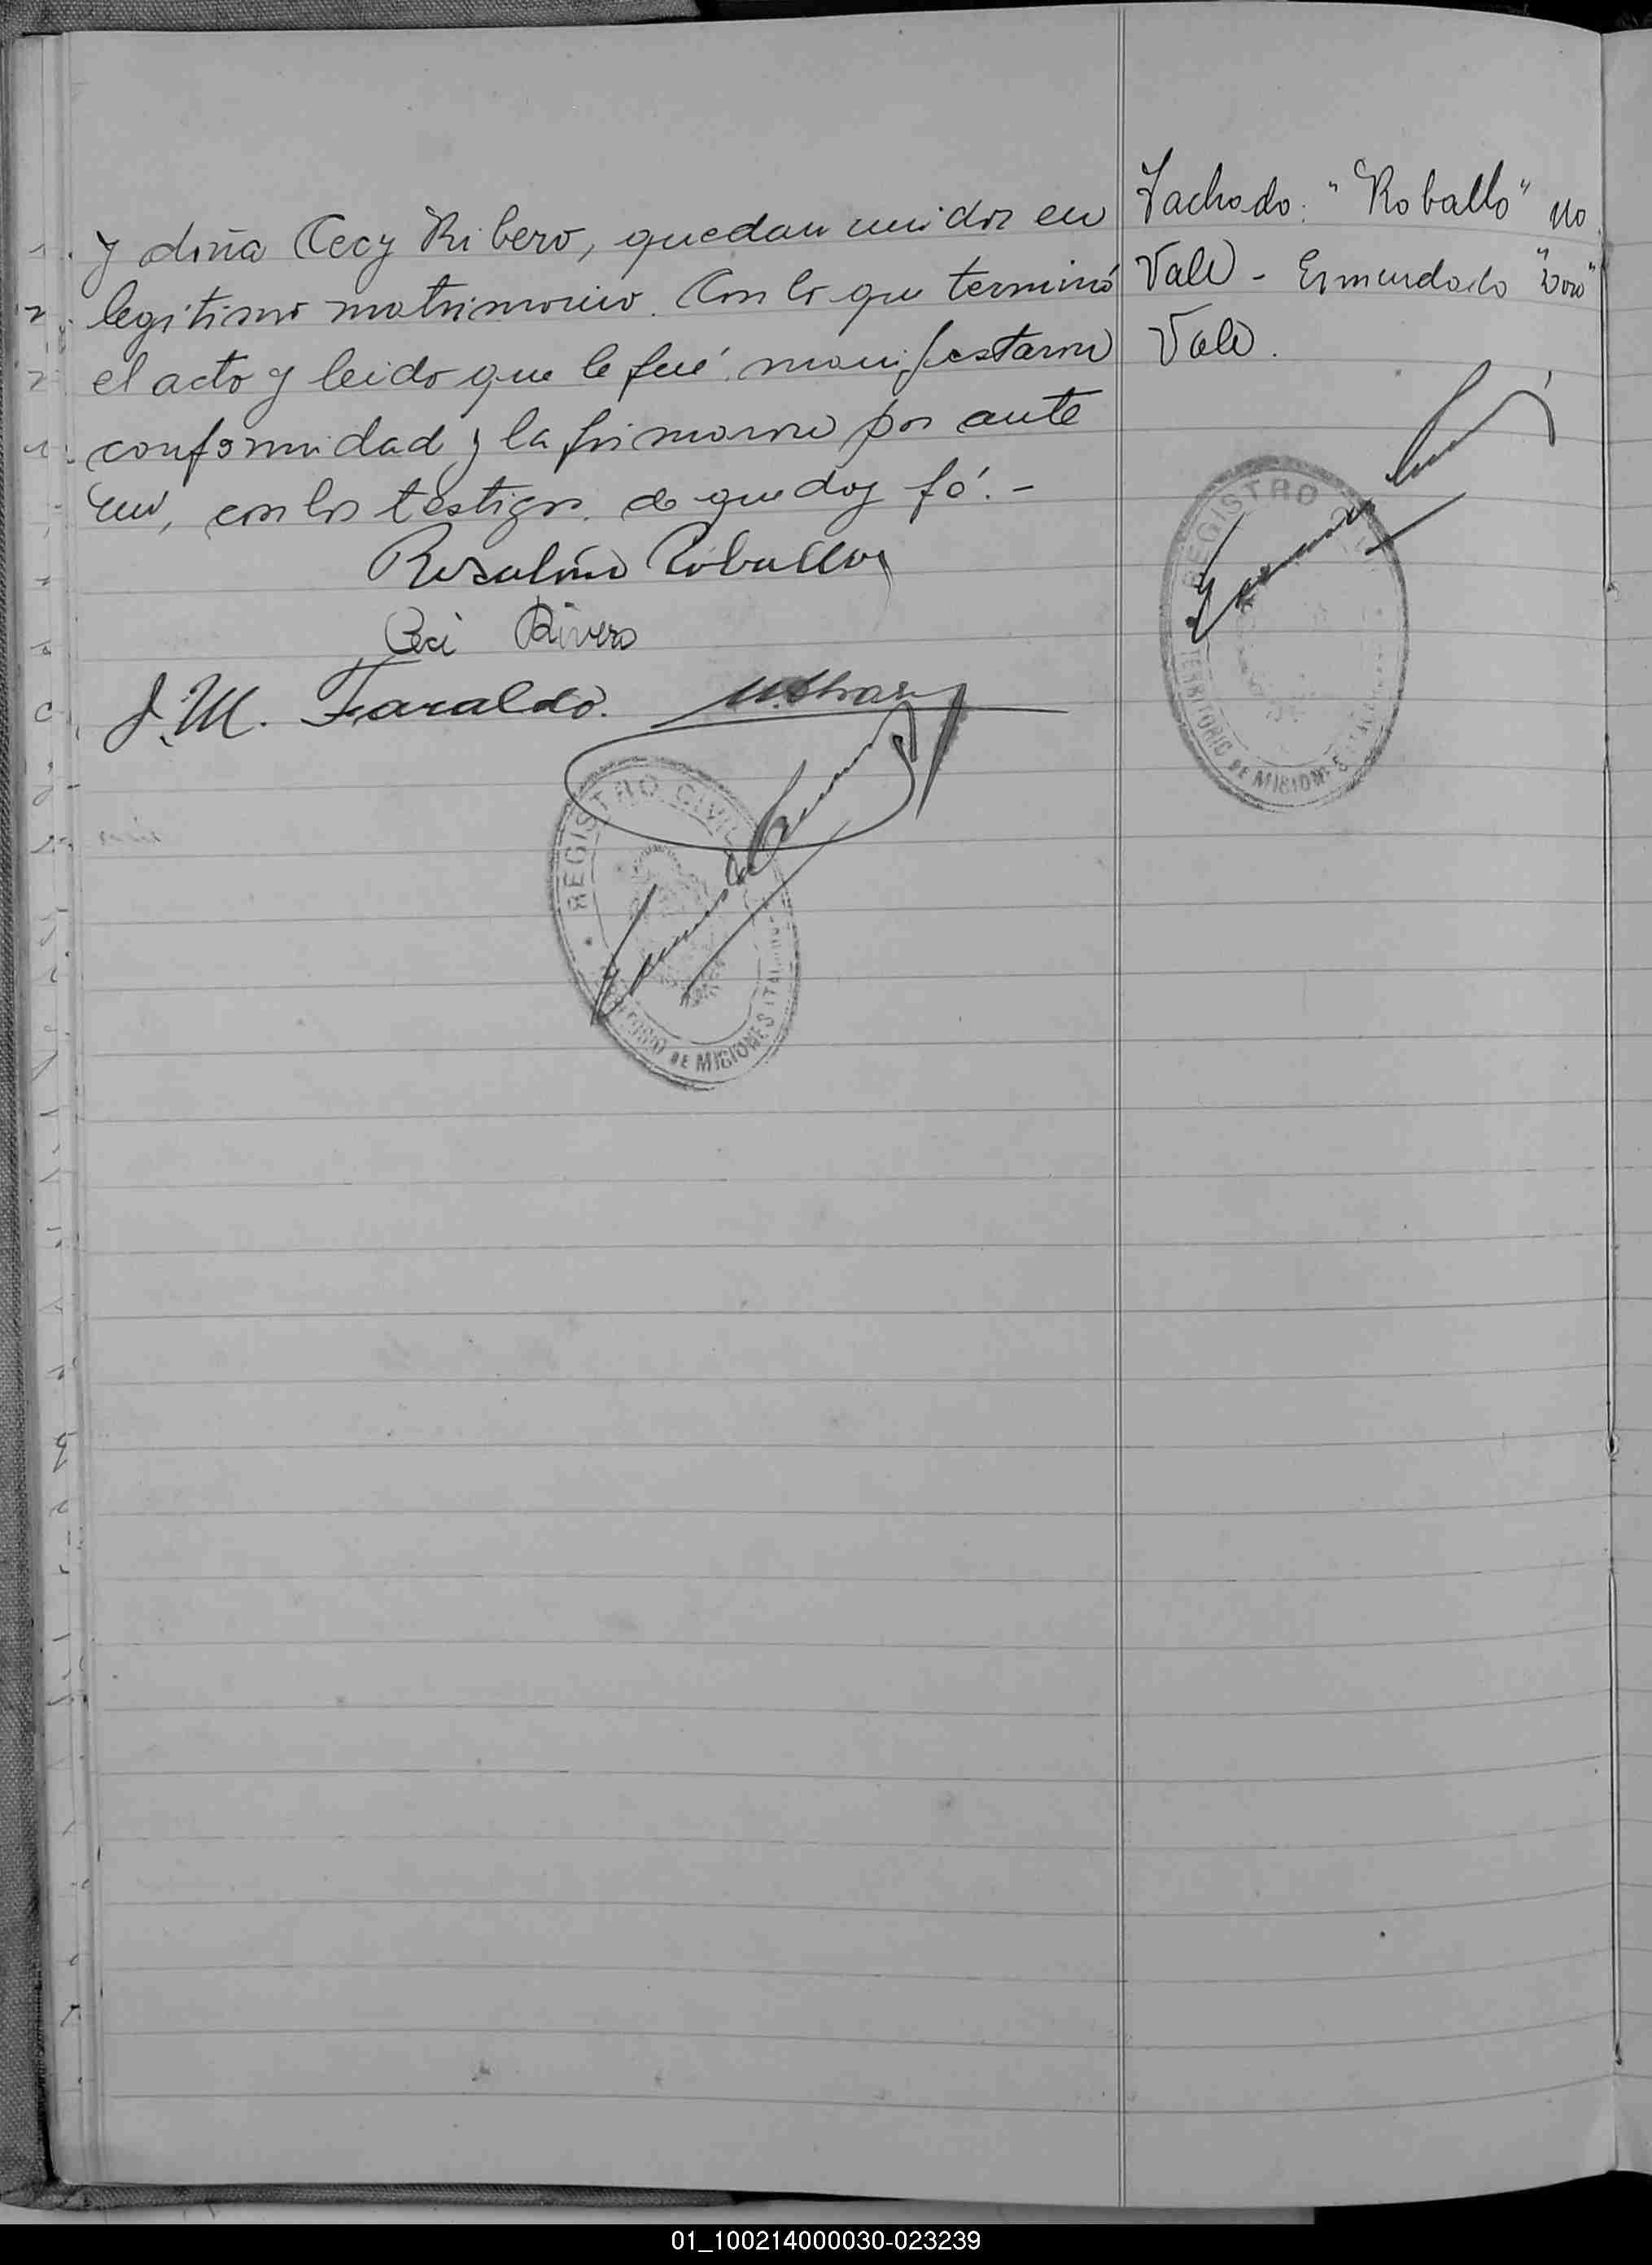 y doña Cecy Ribero, quedan unidos en
legitimo matrimonio. Con lo que terminó
el acto y leido que le fué, manifestaron
conformidad y la firmaron por ante
mi, con los testigos de que doy fé.-
Rosalino Roballo
Ceci Rivero
J. M. Faraldo.
REGISTRO CIVIL
TERRITORIO DE MISIONES
Tachado: "Roballo" no
Vale - Enmendado
Vale.
REGISTRO CIVIL
TERRITORIO DE MISIONES
01_100214000030-023239